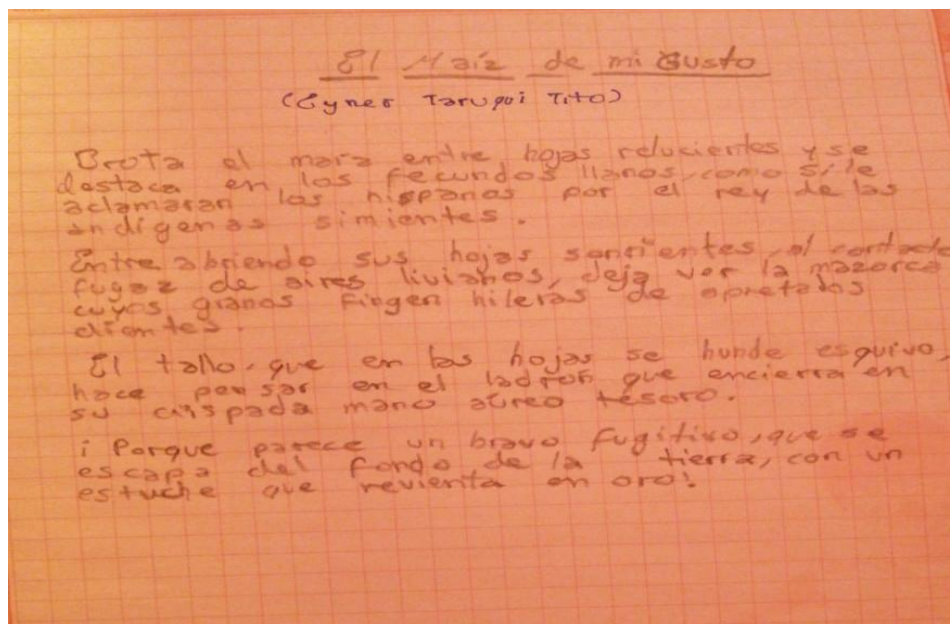 El Maíz de mi Gusto
(Eyner Taruqui Tito)
Brota el maíz entre hojas relucientes y se
destaca en los fecundos llanos, como si le
aclamaran los hispanos por el rey de las
indígenas simientes.
Entre abriendo sus hojas sonrientes, al contacto
fugaz de aires livianos, deja ver la mazorca
cuyos granos fingen hileras de apretados
dientes.
El tallo, que en las hojas se hunde esquivo
hace pensar en el ladrón que encierra en
su crispada mano aúreo tesoro.
¡Porque parece un bravo fugitivo, que se
escapa del fondo de la tierra, con un
estuche que revienta en oro!